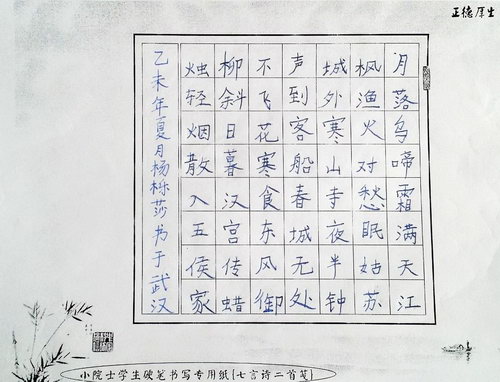 正德厚生
月落乌啼霜满天江
枫渔火对愁眠姑苏
城外寒山寺夜半钟
声到客船春城无处
不飞花寒食东风御
柳斜日暮汉宫传蜡
烛轻烟散入五侯家
乙未年夏月杨栎莎书于武汉
小院士学生硬笔书写专用纸(七言诗二首笺)